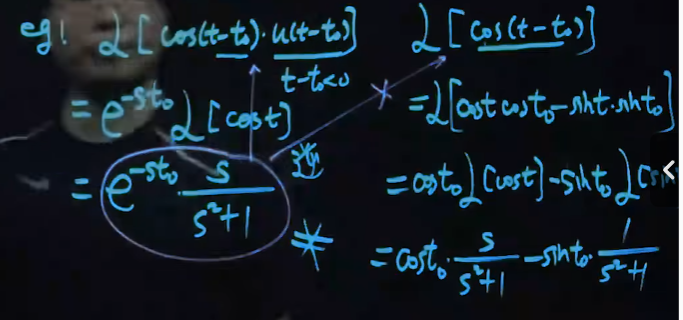 eg! ℒ[cos(t-t₀)·u(t-t₀)]
t-t₀<0
= e^{-st₀} ℒ[cost]
= e^{-st₀}· s/(s²+1)
ℒ[cos(t-t₀)]
=ℒ[cost cost₀-sint·sint₀]
=cost₀ℒ[cost]-sint₀ℒ[sin
=cost₀·s/(s²+1)-sint₀·1/(s²+1)